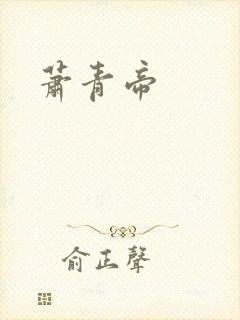 蕭青帝
俞正聲